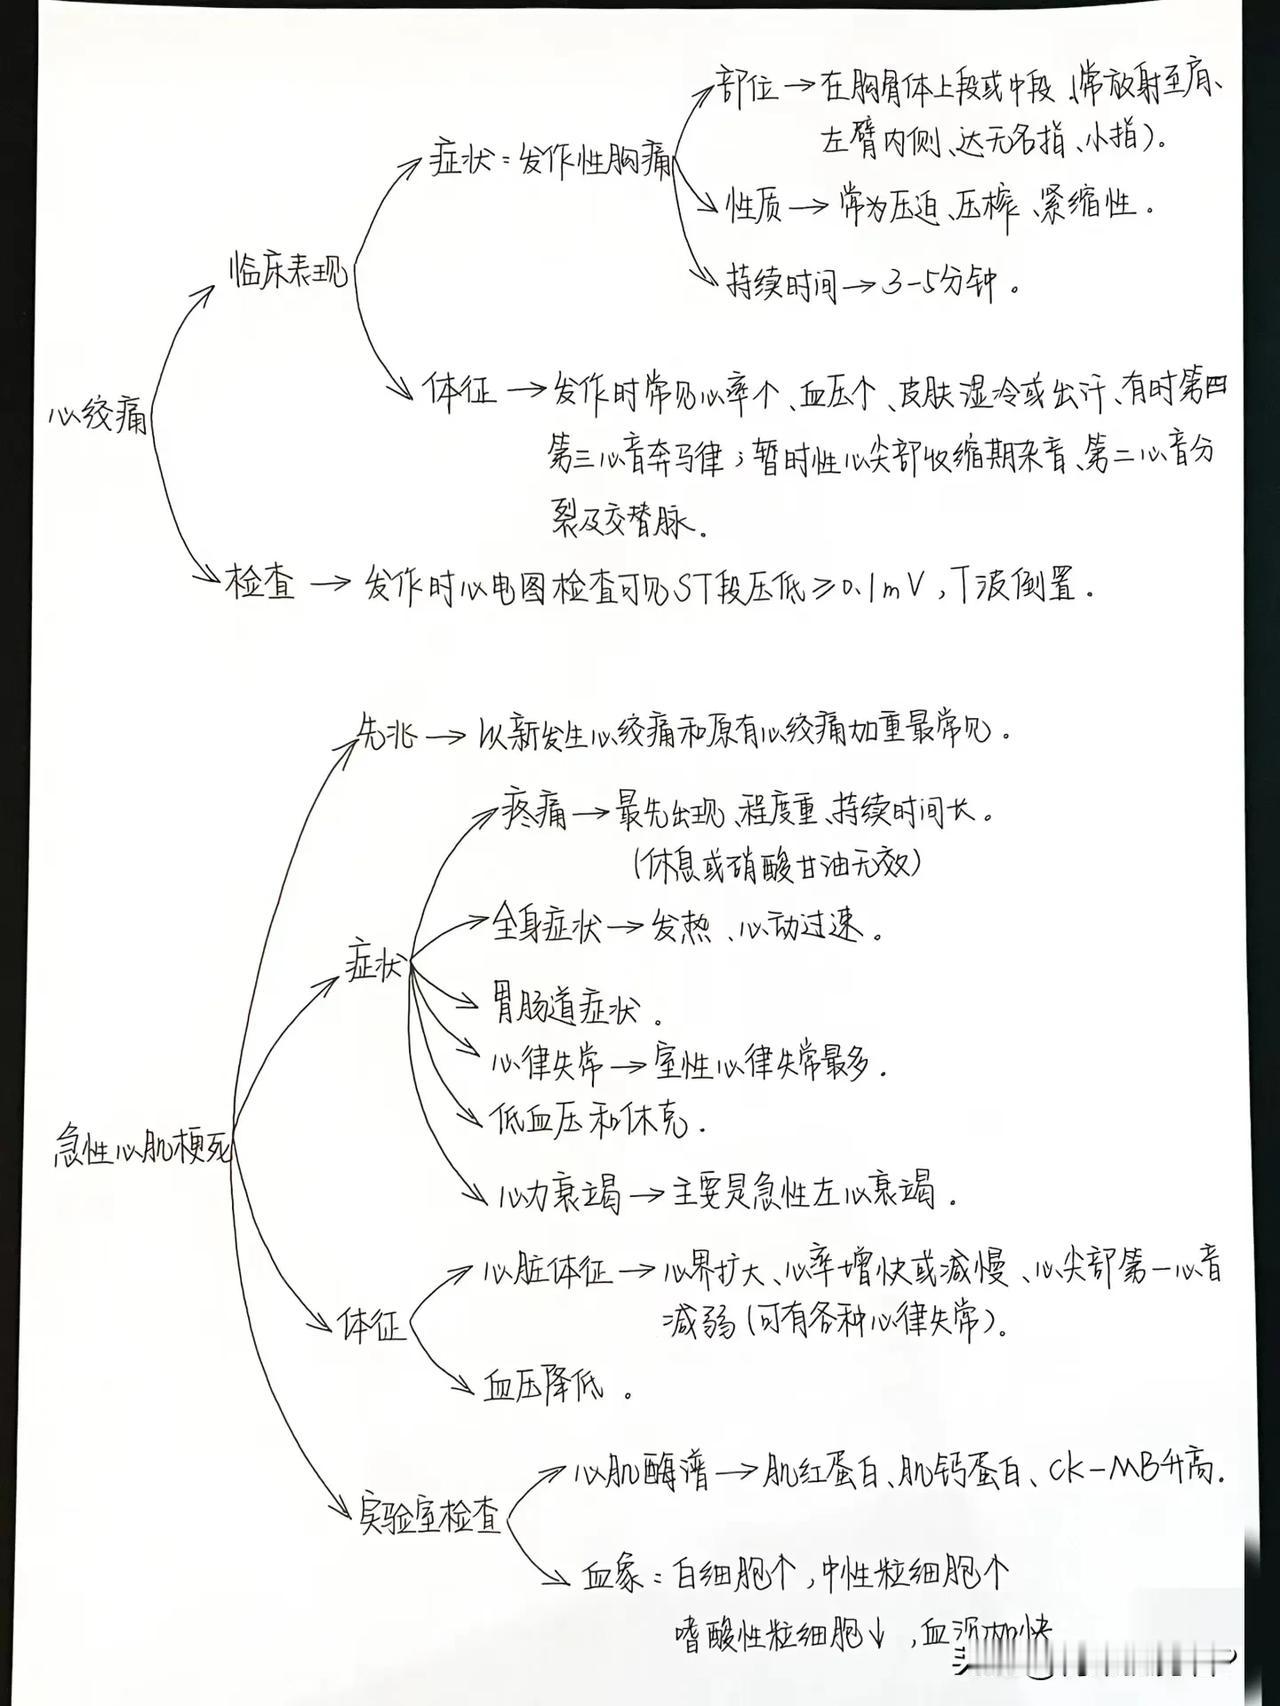 部位→在胸骨体上段或中段、(常放射至肩、
左臂内侧、达无名指、小指)。
症状:发作性胸痛
性质→常为压迫、压榨、紧缩性。
临床表现
持续时间→3-5分钟。
心绞痛
体征→发作时常见心率个、血压个、皮肤湿冷或出汗、有时第四
第三心音奔马律;暂时性心尖部收缩期杂音、第二心音分
裂及交替脉.
检查→发作时心电图检查可见ST段压低≥0.1mV,T波倒置.
先兆→以新发生心绞痛和原有心绞痛加重最常见.
疼痛→最先出现、程度重、持续时间长。
(休息或硝酸甘油无效)
全身症状→发热、心动过速.
症状
胃肠道症状.
心律失常→室性心律失常最多.
低血压和休克.
急性心肌梗死
心力衰竭→主要是急性左心衰竭.
心脏体征→心界扩大、心率增快或减慢、心尖部第一心音
减弱(可有各种心律失常)。
体征
血压降低.
心肌酶谱→肌红蛋白、肌钙蛋白、CK-MB升高.
实验室检查
血象:白细胞个,中性粒细胞个
嗜酸性粒细胞↓,血沉加快